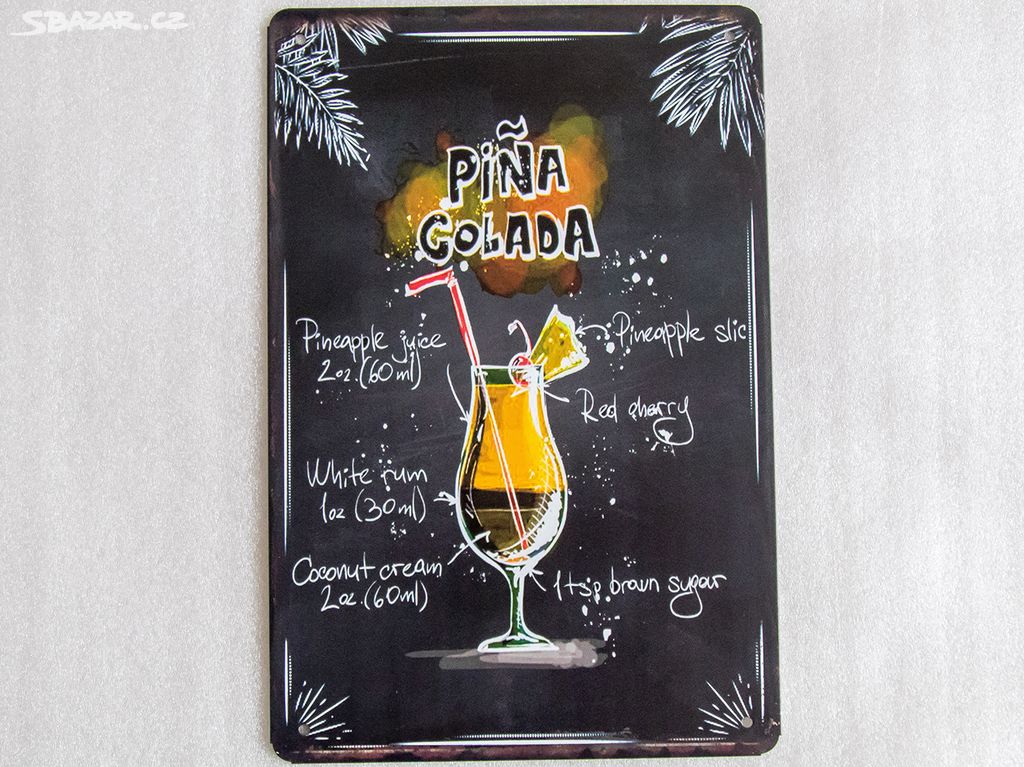 SBAZAR.CZ
PIÑA
COLADA
Pineapple juice
2oz.(60ml)
Pineapple slic
Red charry
White rum
1oz (30ml)
Coconut cream
2oz.(60ml)
1tsp brawn sygar